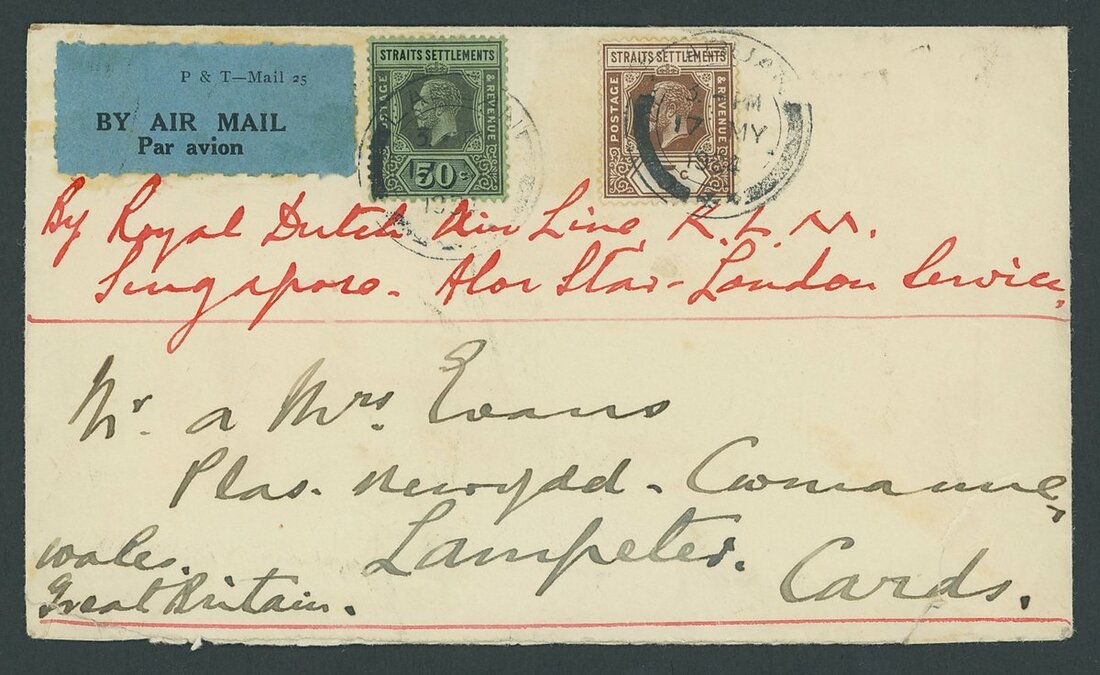 P & T—Mail 25
BY AIR MAIL
Par avion
STRAITS SETTLEMENTS
POSTAGE & REVENUE
50 c
STRAITS SETTLEMENTS
POSTAGE & REVENUE
c
3 PM
17 MY
1934
By Royal Dutch Air Line K.L.M.
Singapore - Alor Star - London Service,
Mr. a Mrs. Evans
Plas. newydd - Cwmanne,
Lampeter.
Cards.
Wales.
Great Britain.